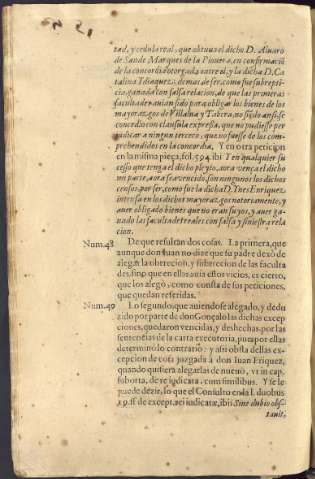 tad, y cedula real, que obtuuo el dicho D. Aluaro
de Sande Marques de la Piouera, en confirmaciō
de la concordia otorgada entre el, y la dicha D. Ca
talina Idiaquez, demas de ser, como fue subrepti-
cia, ganada con falsa relacion, de que las primeras
facultades auian sido para obligar los bienes de los
mayorazgos de Villalua y Tabera, no siēdo ansi: se
concedio con clausula expressa, que no pudiesse per
judicar a ningun tercero, que no fuesse de los com-
prehendidos en la concordia. Y en otra peticion
en la misma pieça, fol. 594. ibi Y en qualquier su
cesso que tenga el dicho pleyto, aora vença el dicho
mi parte, aora sea vencido, son ningunos los dichos
censos por ser, como fue la dicha D. Ynes Enriquez
intrusa en los dichos mayorazgos notoriamente, y
auer obligado bienes que no eran suyos, y auer ga-
nando las facultades reales con falsa y siniestra rela
cion.
Num. 48 De que resultan dos cosas. La primera, que
aunque don Iuan no dize que su padre dexò de
alegar la obrrecion, y subrrecion de las faculta
des, sino que en ellas auia estos vicios, es cierto,
que los alegò, como consta de sus peticiones,
que quedan referidas.
Num. 49 Lo segundo, que auiendose alegado, y dedu
zido por parte de don Gonçalo las dichas excep
ciones, quedaron vencidas, y deshechas por las
sentencias de la carta executoria, pues por ellas
determinò lo contrario: y assi obsta dellas ex
cepcion de cosa juzgada à don Iuan Enriquez,
quando quisiera alegarlas de nueuo, vt in cap.
suborta, de re iudicata, cum similibus. Y se le
puede dezir, lo que el Consulto en la l. duobus
19. ff de except. rei iudicatæ, ibi: Sine dubio obs-
tauit,